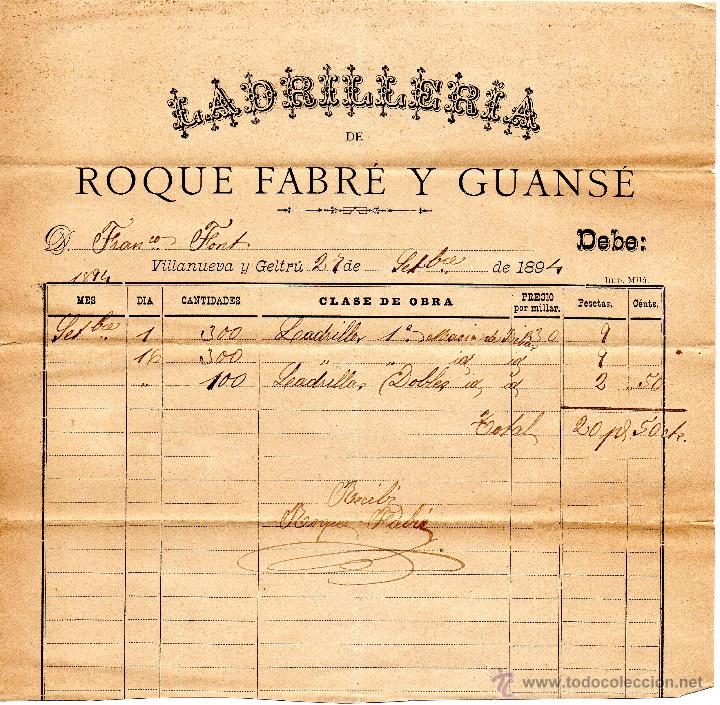 LADRILLERÍA
DE
ROQUE FABRÉ Y GUANSÉ
D. Fran.co Font Debe:
Villanueva y Geltrú 27 de Setbre de 1894
Imp. Milá.
1894
MES DIA CANTIDADES CLASE DE OBRA PRECIO por millar. Pesetas. Cénts.
Setbre 1 300 Ladrillos 1ª 30 9
300 " " id id 9
" 100 Ladrillos Dobles id id 2 50
Total 20 pts 50 cts.
Recibí
Roque Fabré
© www.todocoleccion.net